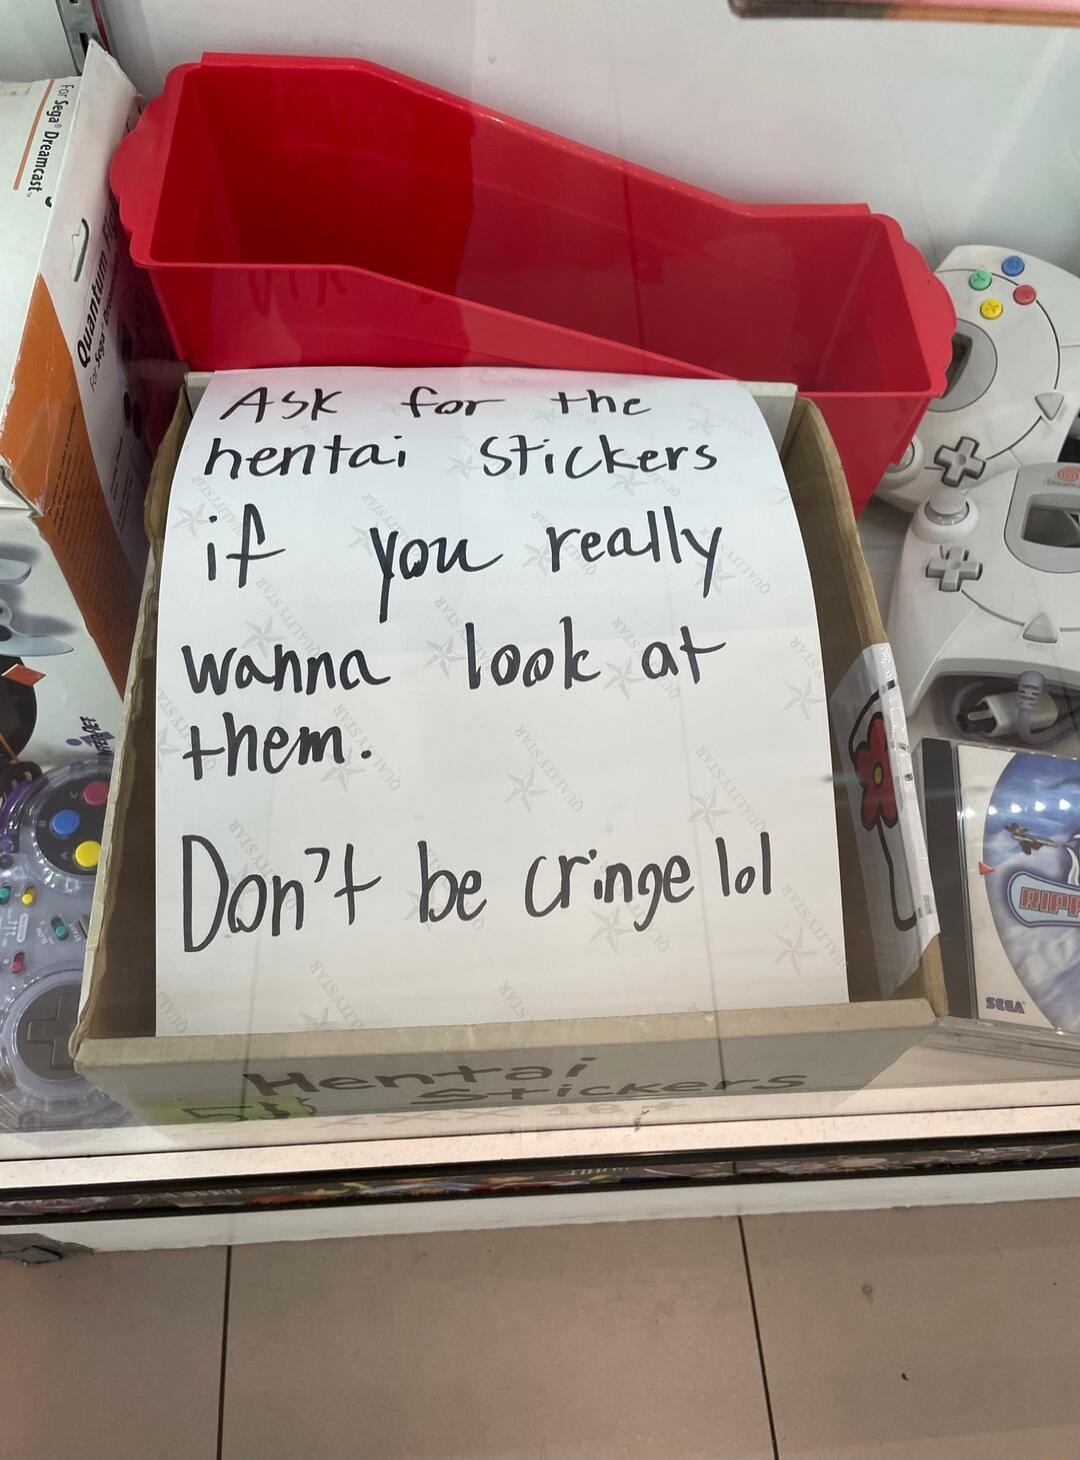 For Sega® Dreamcast™
Quantum
For Sega®
Ask for the
hentai Stickers
if you really
wanna look at
them.
Don't be cringe lol
QUALITY STAR
Hentai
Stickers
SEGA